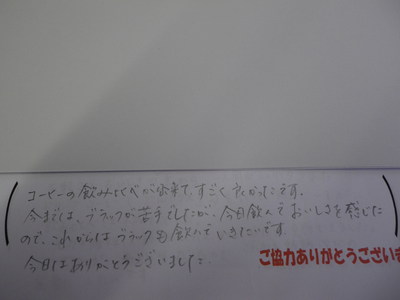 コーヒーの飲みくらべが出来て、すごくよかったです。
今までは、ブラックが苦手でしたが、今日飲んでおいしさを感じた
ので、これからはブラックも飲んでいきたいです
今日はありがとうございました
ご協力ありがとうござい